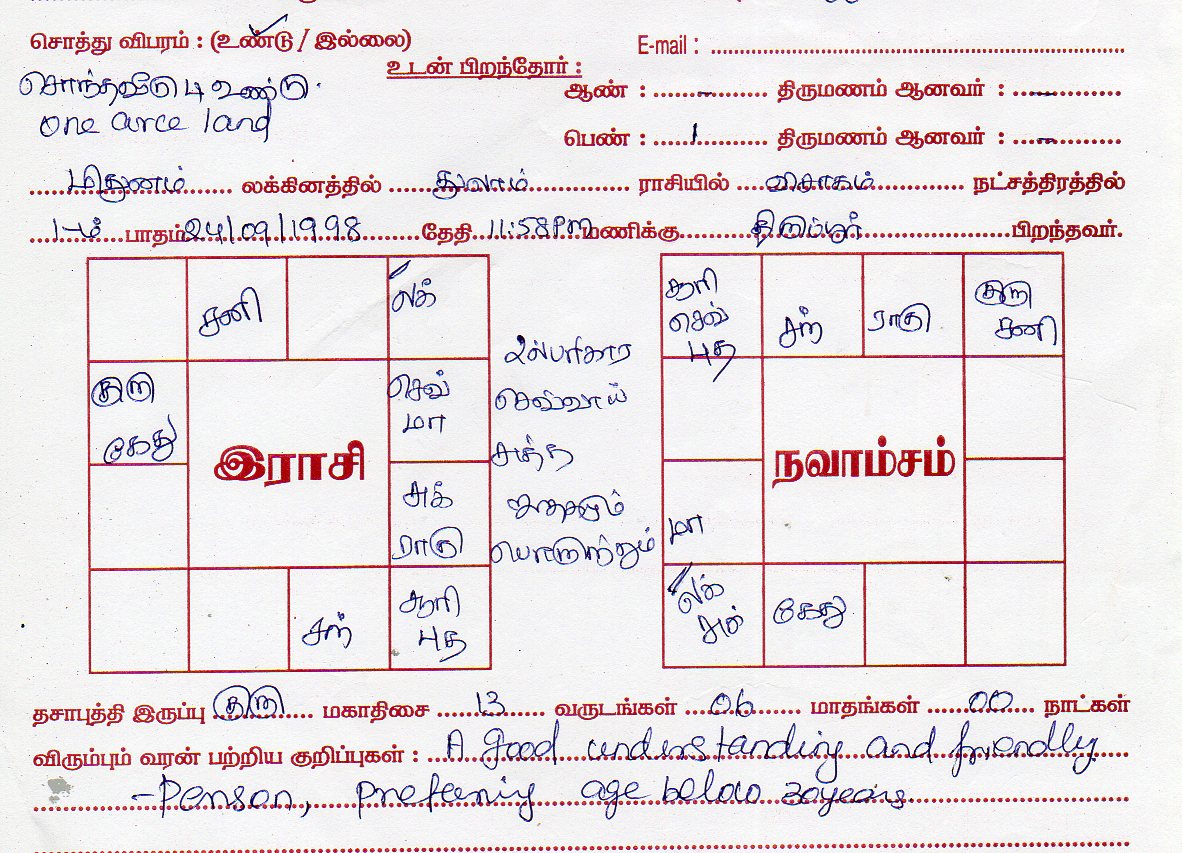 சொத்து விபரம் : (உண்டு / இல்லை)
E-mail :
சொந்தவீடு உண்டு.
one acre land
உடன் பிறந்தோர் :
ஆண் : – திருமணம் ஆனவர் : –
பெண் : 1 திருமணம் ஆனவர் : –
மிதுனம் லக்கினத்தில் துலாம் ராசியில் விசாகம் நட்சத்திரத்தில்
1-ம் பாதம் 24/09/1998 தேதி 11:58PM மணிக்கு திருப்பூர் பிறந்தவர்.
சனி
லக்
குரு
கேது
செவ்
மா
இராசி
சுக்
ராகு
சந்
சூரி
புத
செவ்வாய்
பொருந்தும்
சூரி
செவ்
புத
சந்
ராகு
குரு
சனி
நவாம்சம்
மா
லக்
சுக்
கேது
தசாபுத்தி இருப்பு குரு மகாதிசை 13 வருடங்கள் 06 மாதங்கள் 00 நாட்கள்
விரும்பும் வரன் பற்றிய குறிப்புகள் : A good understanding and friendly
-Person, prefering age below 30years